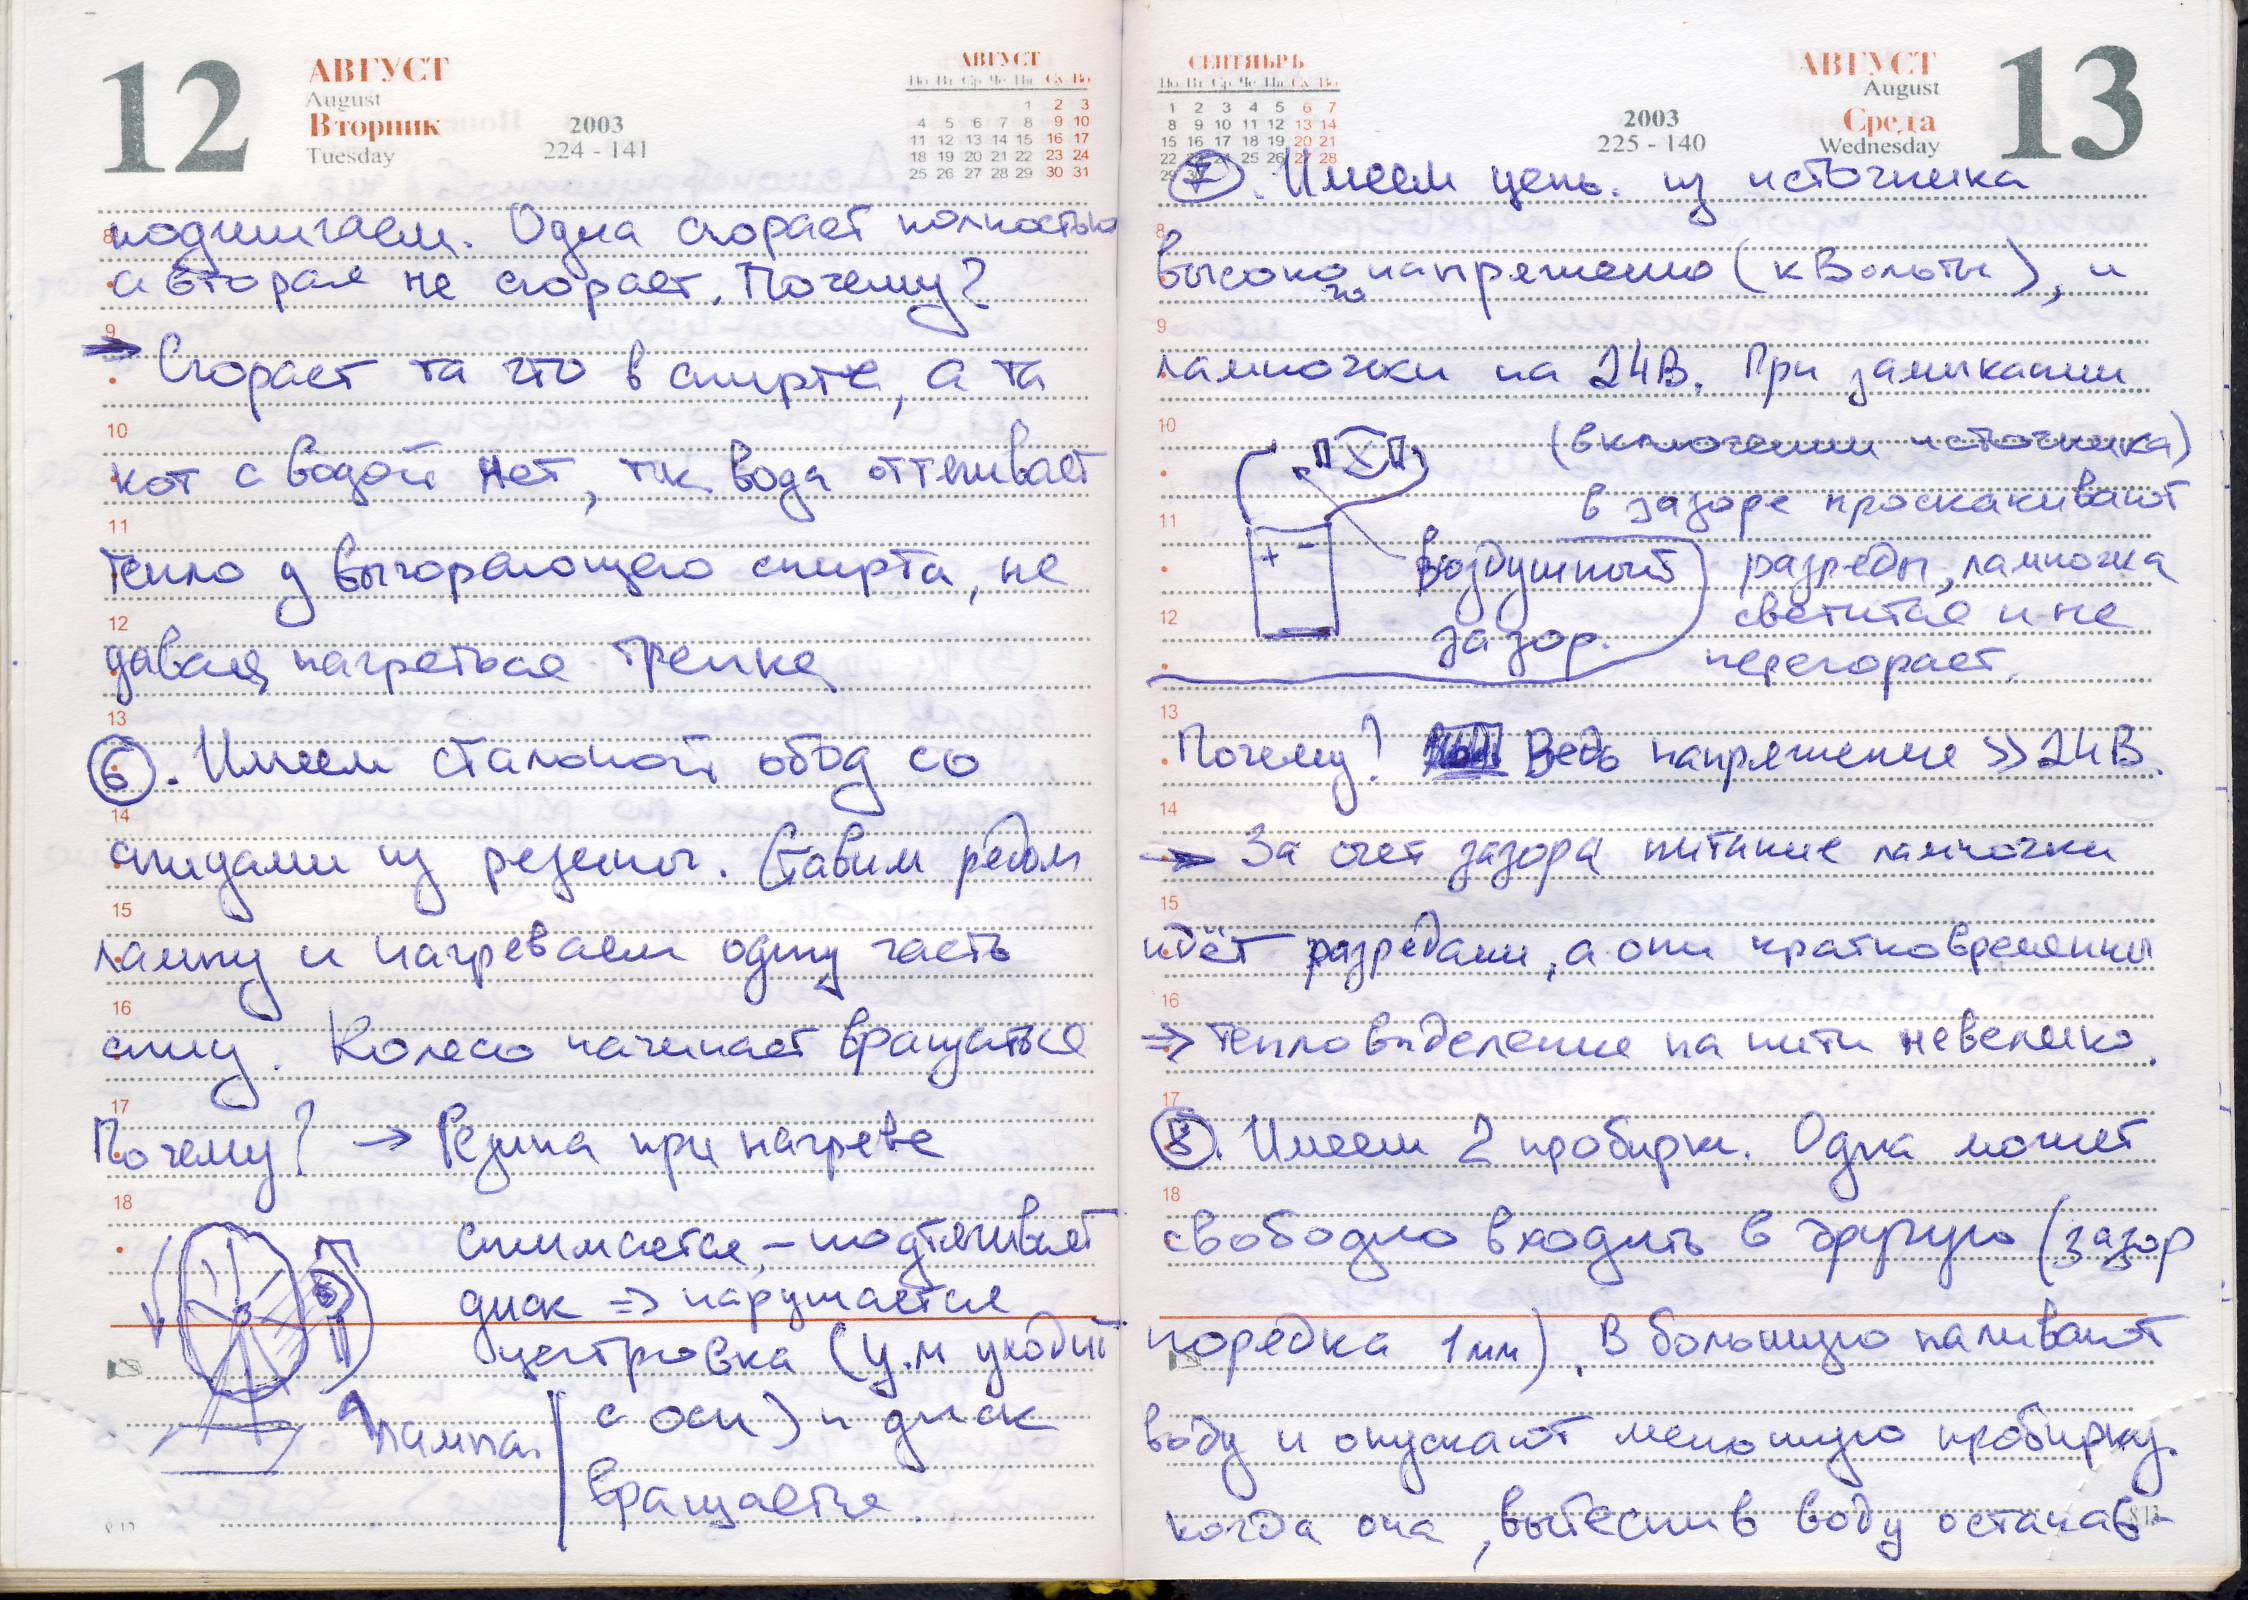 12
АВГУСТ
August
Вторник
Tuesday
2003
224 - 141
АВГУСТ
По Вт Ср Че Пя Су Во
1 2 3
4 5 6 7 8 9 10
11 12 13 14 15 16 17
18 19 20 21 22 23 24
25 26 27 28 29 30 31
поджигаем. Одна сгорает полностью
а вторая не сгорает. Почему?
→ Сгорает та что в спирте, а та
кот с водой нет, тк вода оттягивает
тепло у выгорающего спирта, не
давая нагреться тряпке
6. Имеем стальной обод со
спицами из резины. Ставим рядом
лампу и нагреваем одну часть
спиц. Колесо начинает вращаться
Почему? → Резина при нагреве
сжимается, – подтягивает
диск => нарушается
центровка (ц.м уходит
с оси) и диск
вращается.
лампа.
8
9
10
11
12
13
14
15
16
17
18
СЕНТЯБРЬ
По Вт Ср Че Пя Су Во
1 2 3 4 5 6 7
8 9 10 11 12 13 14
15 16 17 18 19 20 21
22 25 26 27 28
29
2003
225 - 140
АВГУСТ
August
Среда
Wednesday
13
7. Имеем цепь. из источника
высокого напряжению (кВольты), и
лампочки на 24В. При замыкании
(включении источника)
в зазоре проскакивают
разряды, лампочка
светится и не
перегорает.
+ -
воздушный
зазор.
Почему? Ведь напряжение >> 24В.
→ За счет зазора питание лампочки
идёт разрядами, а они кратковременны
=> тепловыделение на нити невелико.
8. Имеем 2 пробирки. Одна может
свободно входить в другую (зазор
порядка 1мм). В большую наливают
воду и опускают меньшую пробирку.
когда она, вытеснив воду останав-
8
9
10
11
12
13
14
15
16
17
18